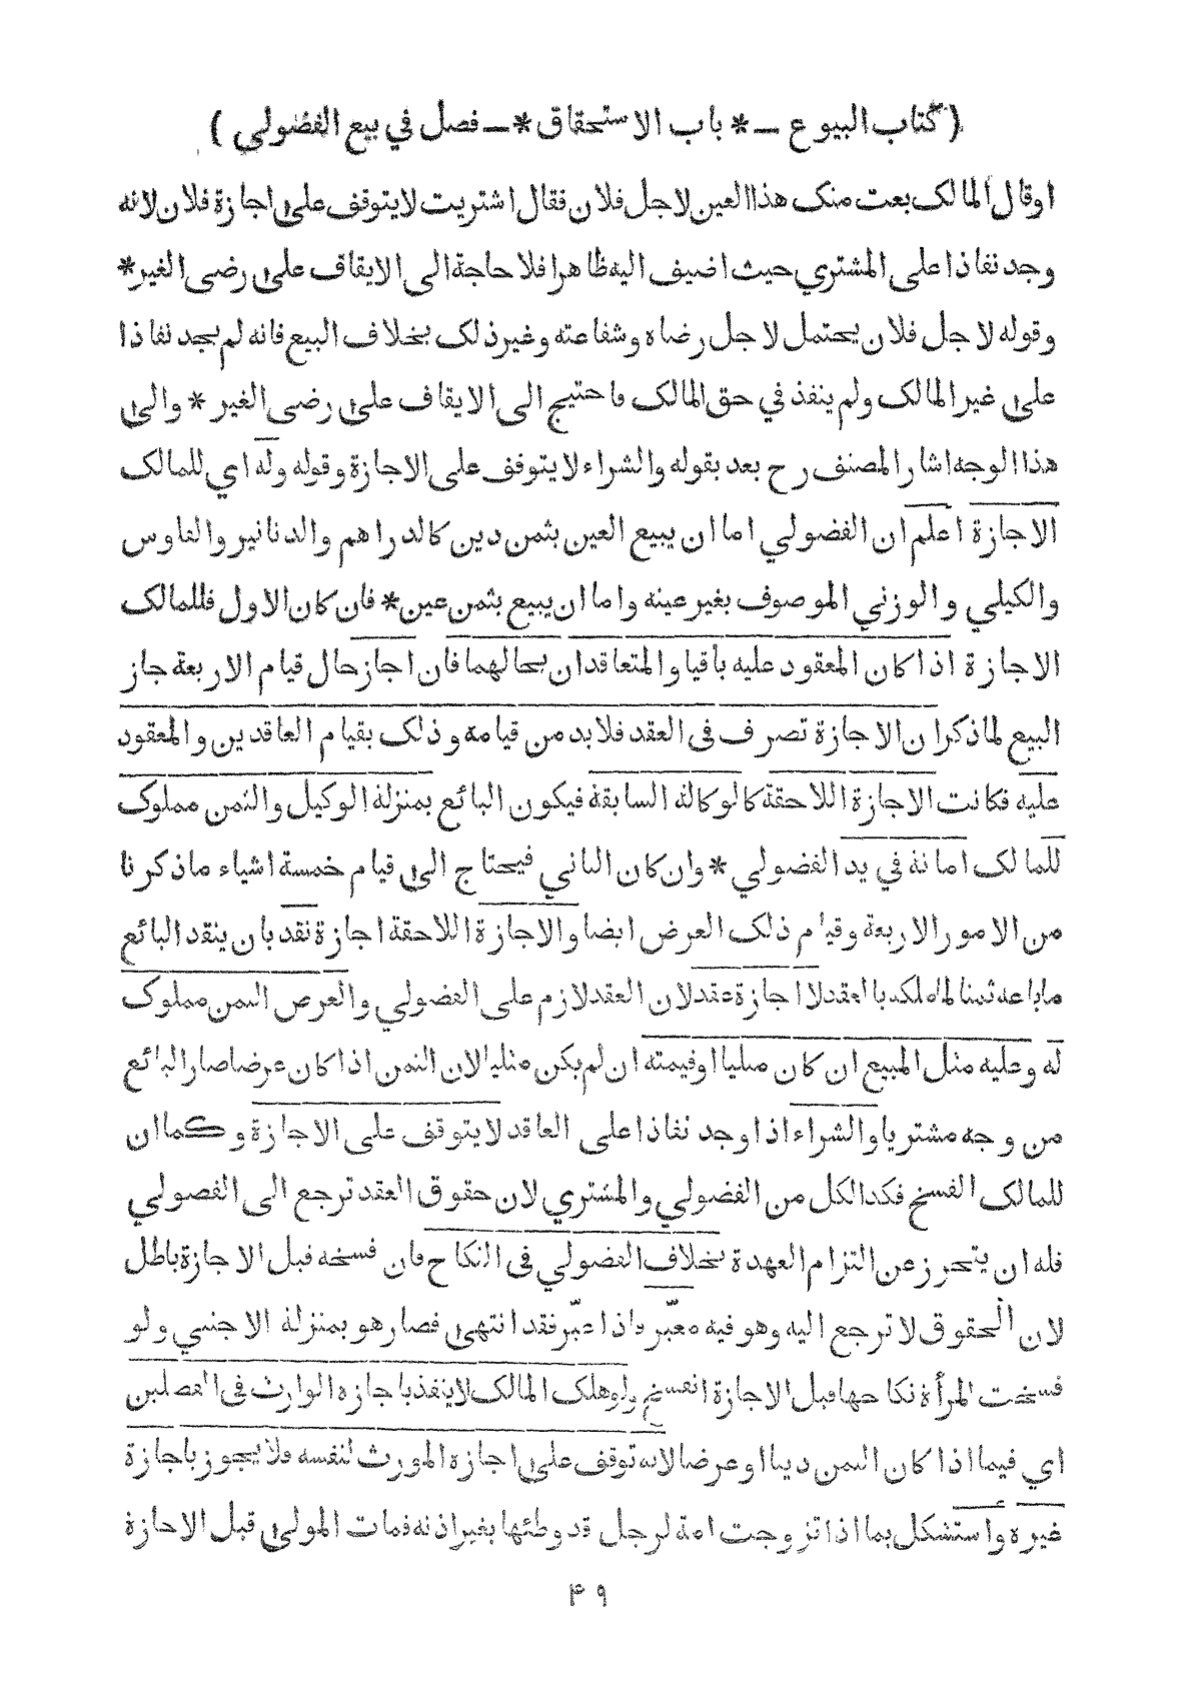 ( كتاب البيوع — * باب الاستحقاق * — فصل في بيع الفضولي )
او قال المالك بعت منك هذا العين لاجل فلان فقال اشتريت لا يتوقف على اجازة فلان لانه
وجد نفاذا على المشتري حيث اضيف اليه ظاهرا فلا حاجة الى الايقاف على رضى الغير *
وقوله لاجل فلان يحتمل لاجل رضاه وشفاعته وغير ذلك بخلاف البيع فانه لم يجد نفاذا
على غير المالك ولم ينفذ في حق المالك فاحتيج الى الايقاف على رضى الغير * والى
هذا الوجه اشار المصنف رح بعد بقوله والشراء لا يتوقف على الاجازة وقوله وله اي للمالك
الاجازة اعلم ان الفضولي اما ان يبيع العين بثمن دين كالدراهم والدنانير والفلوس
والكيلي والوزني الموصوف بغير عينه واما ان يبيع بثمن عين * فان كان الاول فللمالك
الاجازة اذا كان المعقود عليه باقيا والمتعاقدان بحالهما فان اجاز حال قيام الاربعة جاز
البيع لما ذكرا ن الاجازة تصرف في العقد فلابد من قيامه وذلك بقيام العاقدين والمعقود
عليه فكانت الاجازة اللاحقة كالوكالة السابقة فيكون البائع بمنزلة الوكيل والثمن مملوك
للمالك امانة في يد الفضولي * وان كان الثاني فيحتاج الى قيام خمسة اشياء ما ذكرنا
من الامور الاربعة وقيام ذلك العرض ايضا والاجازة اللاحقة اجازة نقد بان ينقد البائع
ما باعه ثمنا لما ملكه بالعقد لا اجازة عقد لان العقد لازم على الفضولي والعرض الثمن مملوك
له وعليه مثل المبيع ان كان مثليا او قيمته ان لم يكن مثليا لان الثمن اذا كان عرضا صار البائع
من وجه مشتريا والشراء اذا وجد نفاذا على العاقد لا يتوقف على الاجازة وكما ان
للمالك الفسخ فكذا لكل من الفضولي والمشتري لان حقوق العقد ترجع الى الفضولي
فله ان يتحرز عن التزام العهدة بخلاف الفضولي في النكاح فان فسخه قبل الاجازة باطل
لان الحقوق لا ترجع اليه وهو فيه معبّر فاذا عبّر فقد انتهى فصار هو بمنزلة الاجنبي ولو
فسخت المرأة نكاحها قبل الاجازة انفسخ ولو هلك المالك لا ينفذ باجازة الوارث في الفصلين
اي فيما اذا كان الثمن دينا او عرضا لانه توقف على اجازة المورث لنفسه فلا يجوز باجازة
غيره واستشكل بما اذا تزوجت امة لرجل قد وطئها بغير اذنه فمات المولى قبل الاجازة
۴۹